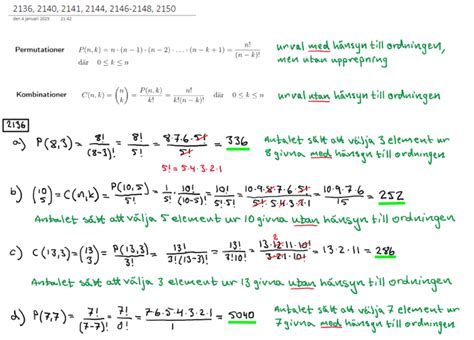 2136, 2140, 2141, 2144, 2146-2148, 2150
den 4 januari 2023 21:42
Permutationer P(n, k) = n · (n − 1) · (n − 2) · . . . · (n − k + 1) = n!/(n − k)!
där 0 ≤ k ≤ n
urval med hänsyn till ordningen,
men utan upprepning
Kombinationer C(n, k) = (n k) = P(n, k)/k! = n!/k!(n − k)! där 0 ≤ k ≤ n
urval utan hänsyn till ordningen
2136
a) P(8,3) = 8!/(8-3)! = 8!/5! = 8·7·6·5!/5! = 336
5! = 5·4·3·2·1
Antalet sätt att välja 3 element ur
8 givna med hänsyn till ordningen.
b) (10 5) = C(n,k) = P(10,5)/5! = 1/5! · 10!/(10-5)! = 10!/5!5! = 10·9·8·7·6·5!/5!·5·4·3·2·1 = 10·9·7·6/15 = 252
Antalet sätt att välja 5 element ur 10 givna utan hänsyn till ordningen
c) C(13,3) = (13 3) = P(13,3)/3! = 13!/3!(13-3)! = 13!/3!10! = 13·12·11·10!/3·2·1·10! = 13·2·11 = 286
2
Antalet sätt att välja 3 element ur 13 givna utan hänsyn till ordningen
d) P(7,7) = 7!/(7-7)! = 7!/0! = 7·6·5·4·3·2·1/1 = 5040
Antalet sätt att välja 7 element ur
7 givna med hänsyn till ordningen